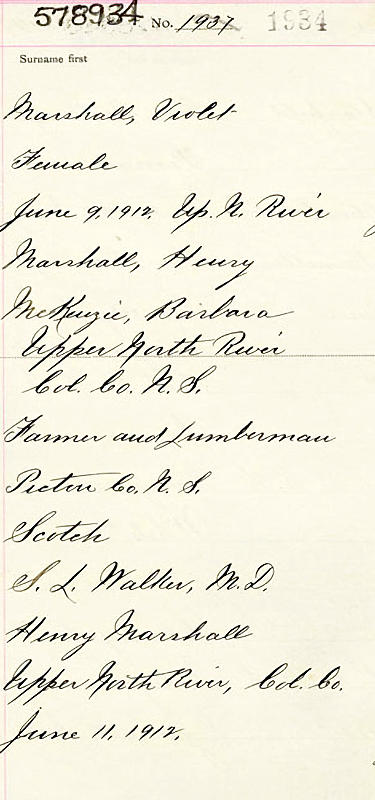 578934 No. 1937 1934
Surname first
Marshall, Violet
Female
June 9, 1912. Up. N. River
Marshall, Henry
McKenzie, Barbara
Upper North River
Col. Co. N. S.
Farmer and Lumberman
Pictou Co. N. S.
Scotch
S. L. Walker, M.D.
Henry Marshall
Upper North River, Col. Co.
June 11, 1912.